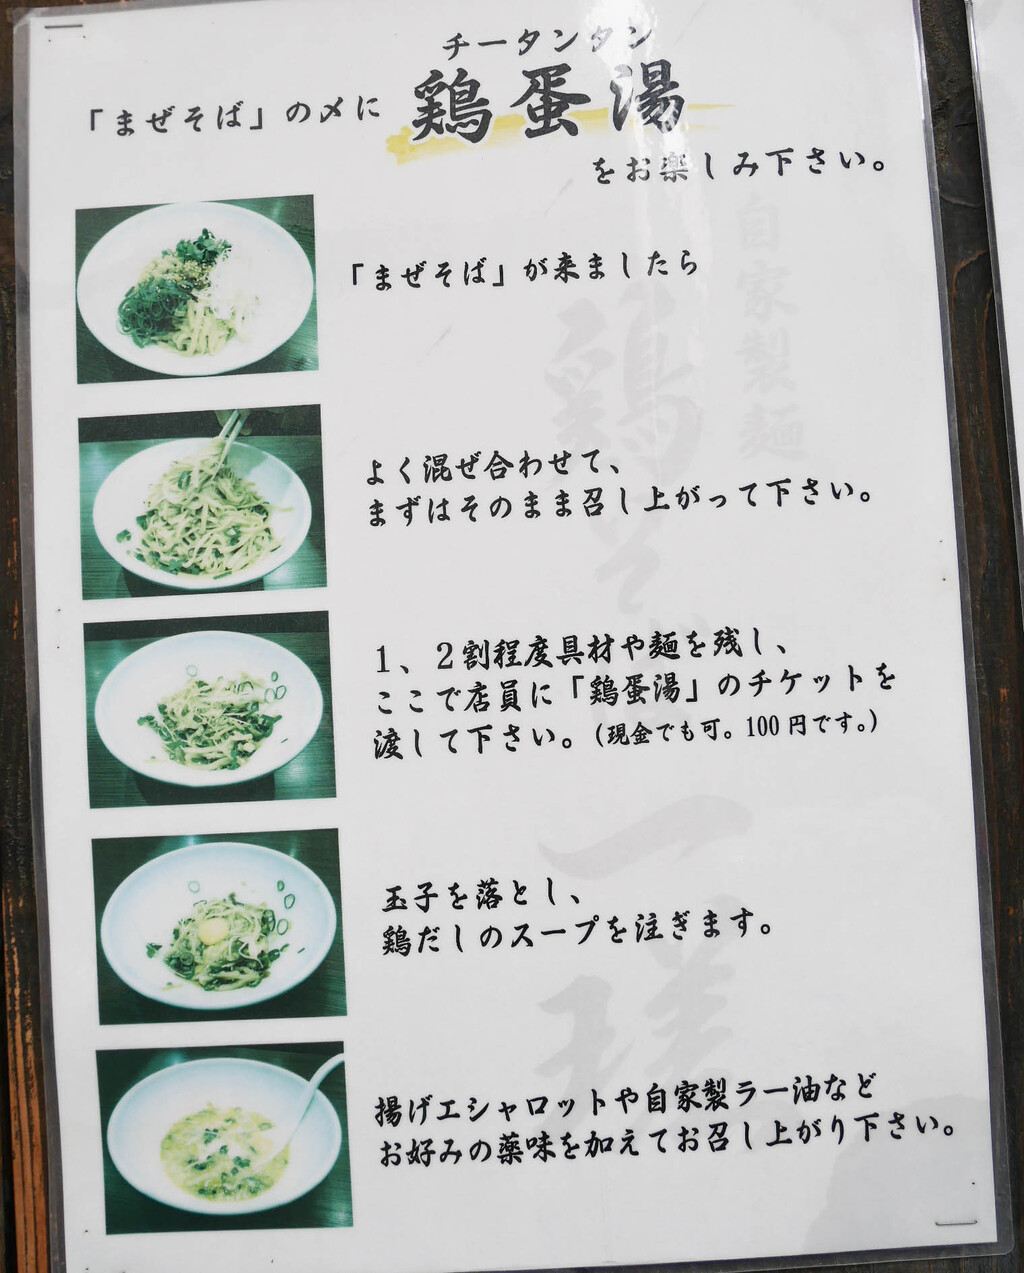 チータンタン
「まぜそば」の〆に 鶏蛋湯
をお楽しみ下さい。
「まぜそば」が来ましたら
よく混ぜ合わせて、
まずはそのまま召し上がって下さい。
1、2割程度具材や麺を残し、
ここで店員に「鶏蛋湯」のチケットを
渡して下さい。(現金でも可。100円です。)
玉子を落とし、
鶏だしのスープを注ぎます。
揚げエシャロットや自家製ラー油など
お好みの薬味を加えてお召し上がり下さい。
自家製麺
鶏そば一瑳